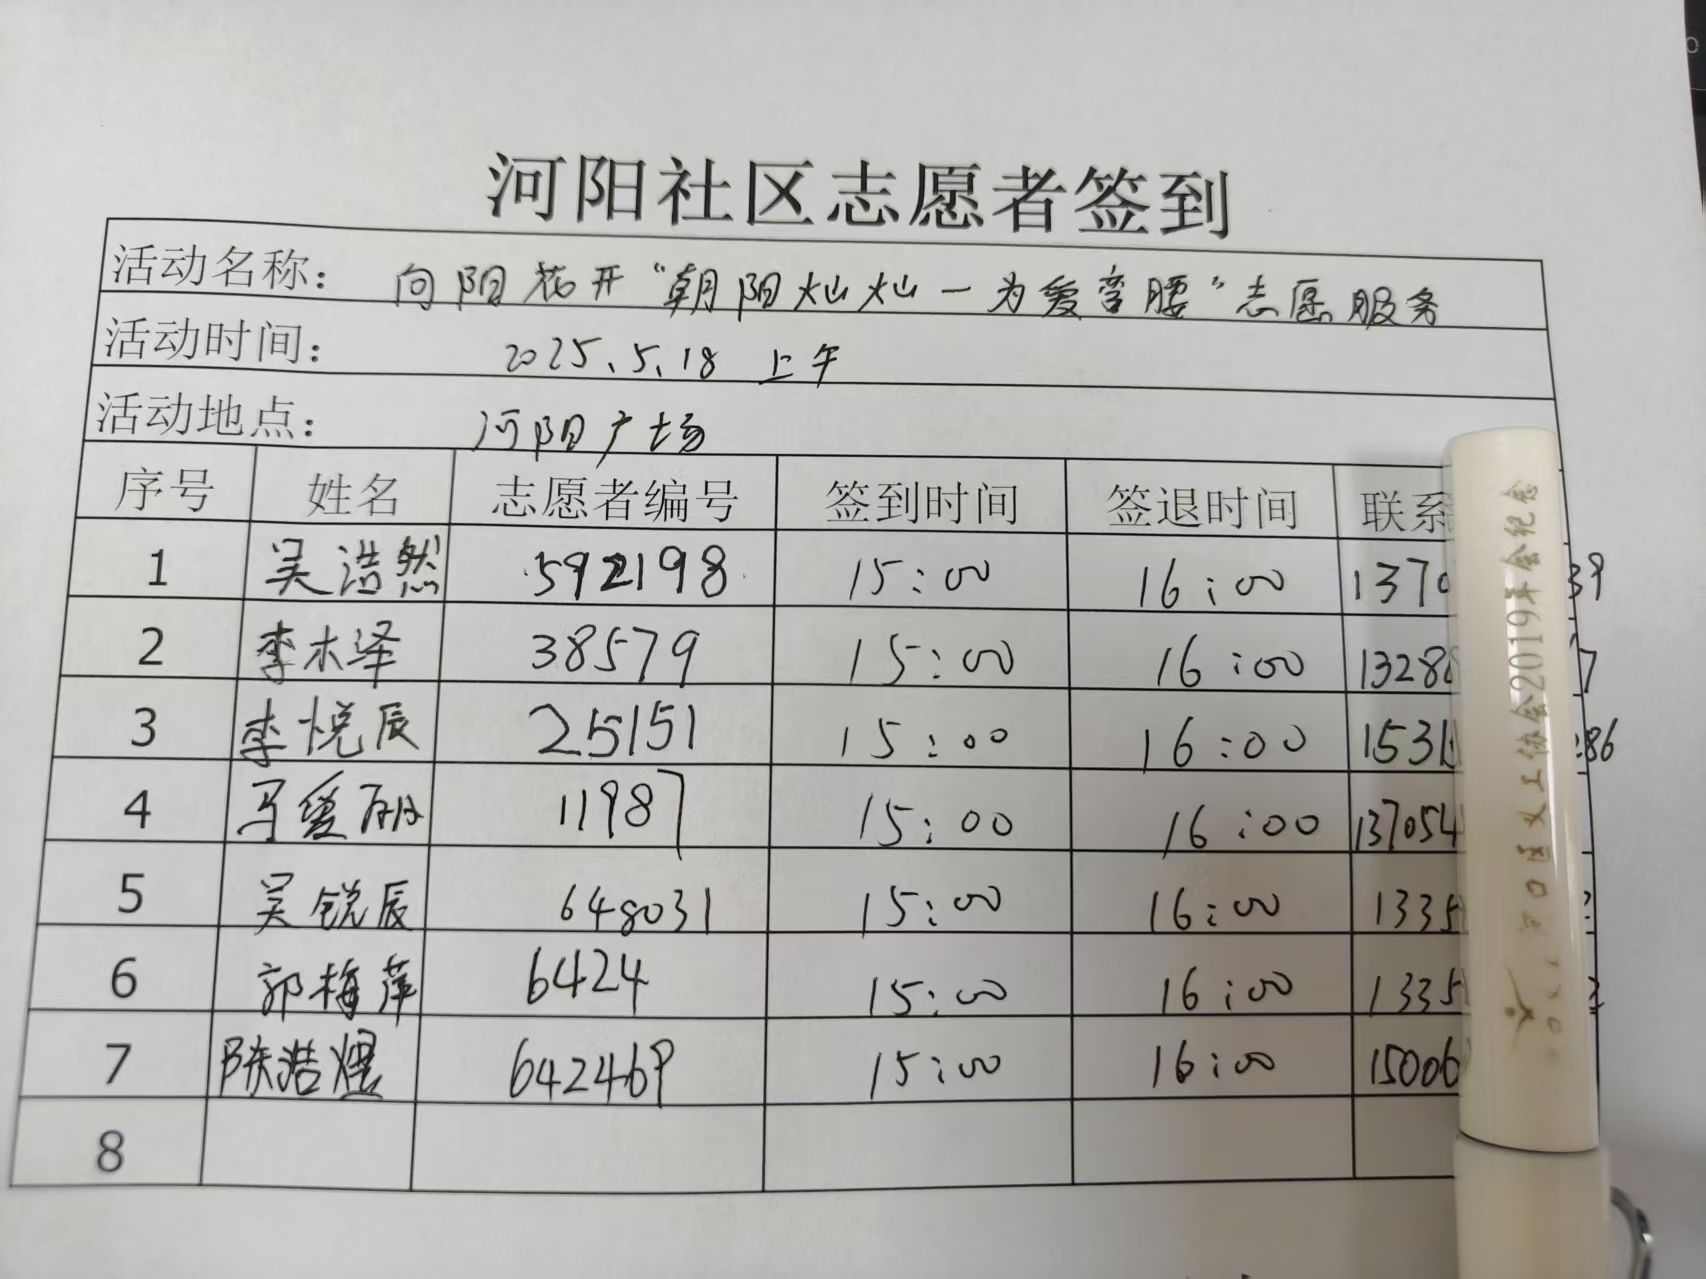 河阳社区志愿者签到
活动名称： 向阳花开“朝阳灿灿—为爱弯腰”志愿服务
活动时间： 2025.5.18 上午
活动地点： 河阳广场
序号 姓名 志愿者编号 签到时间 签退时间 联系
1 吴浩然 592198 15:00 16:00 1370 39
2 李木泽 38579 15:00 16:00 1328 7
3 李悦辰 25151 15:00 16:00 1531 286
4 马爱丽 11987 15:00 16:00 137054
5 吴锐辰 648031 15:00 16:00 1335
6 郭梅萍 6424 15:00 16:00 1335
7 陈浩煜 642469 15:00 16:00 15006
8
河口区义工协会2019年会纪念